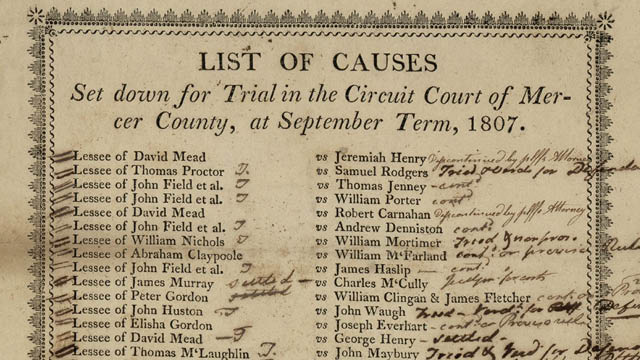 LIST OF CAUSES
Set down for Trial in the Circuit Court of Mer-
cer County, at September Term, 1807.
Lessee of David Mead vs Jeremiah Henry Discontinued by plffs Attorney
Lessee of Thomas Proctor T. vs Samuel Rodgers Tried & Verd for Defenda
Lessee of John Field et al. T vs Thomas Jenney - contd
Lessee of John Field et al. T vs William Porter contd
Lessee of David Mead vs Robert Carnahan Discontinued by plffs Attorney
Lessee of John Field et al. T vs Andrew Denniston contd
Lessee of William Nichols T vs William Mortimer Tried & nonpros.
Lessee of Abraham Claypoole vs William M'Farland contd or
Lessee of John Field et al. T vs James Haslip - contd
Lessee of James Murray settled - vs Charles M'Cully
Lessee of Peter Gordon settled vs William Clingan & James Fletcher contd
Lessee of John Huston T vs John Waugh Tried Verd. for
Lessee of Elisha Gordon vs Joseph Everhart - contd
Lessee of David Mead - T vs George Henry - settled -
Lessee of Thomas M'Laughlin T. vs John Maybury Tried & Verd for